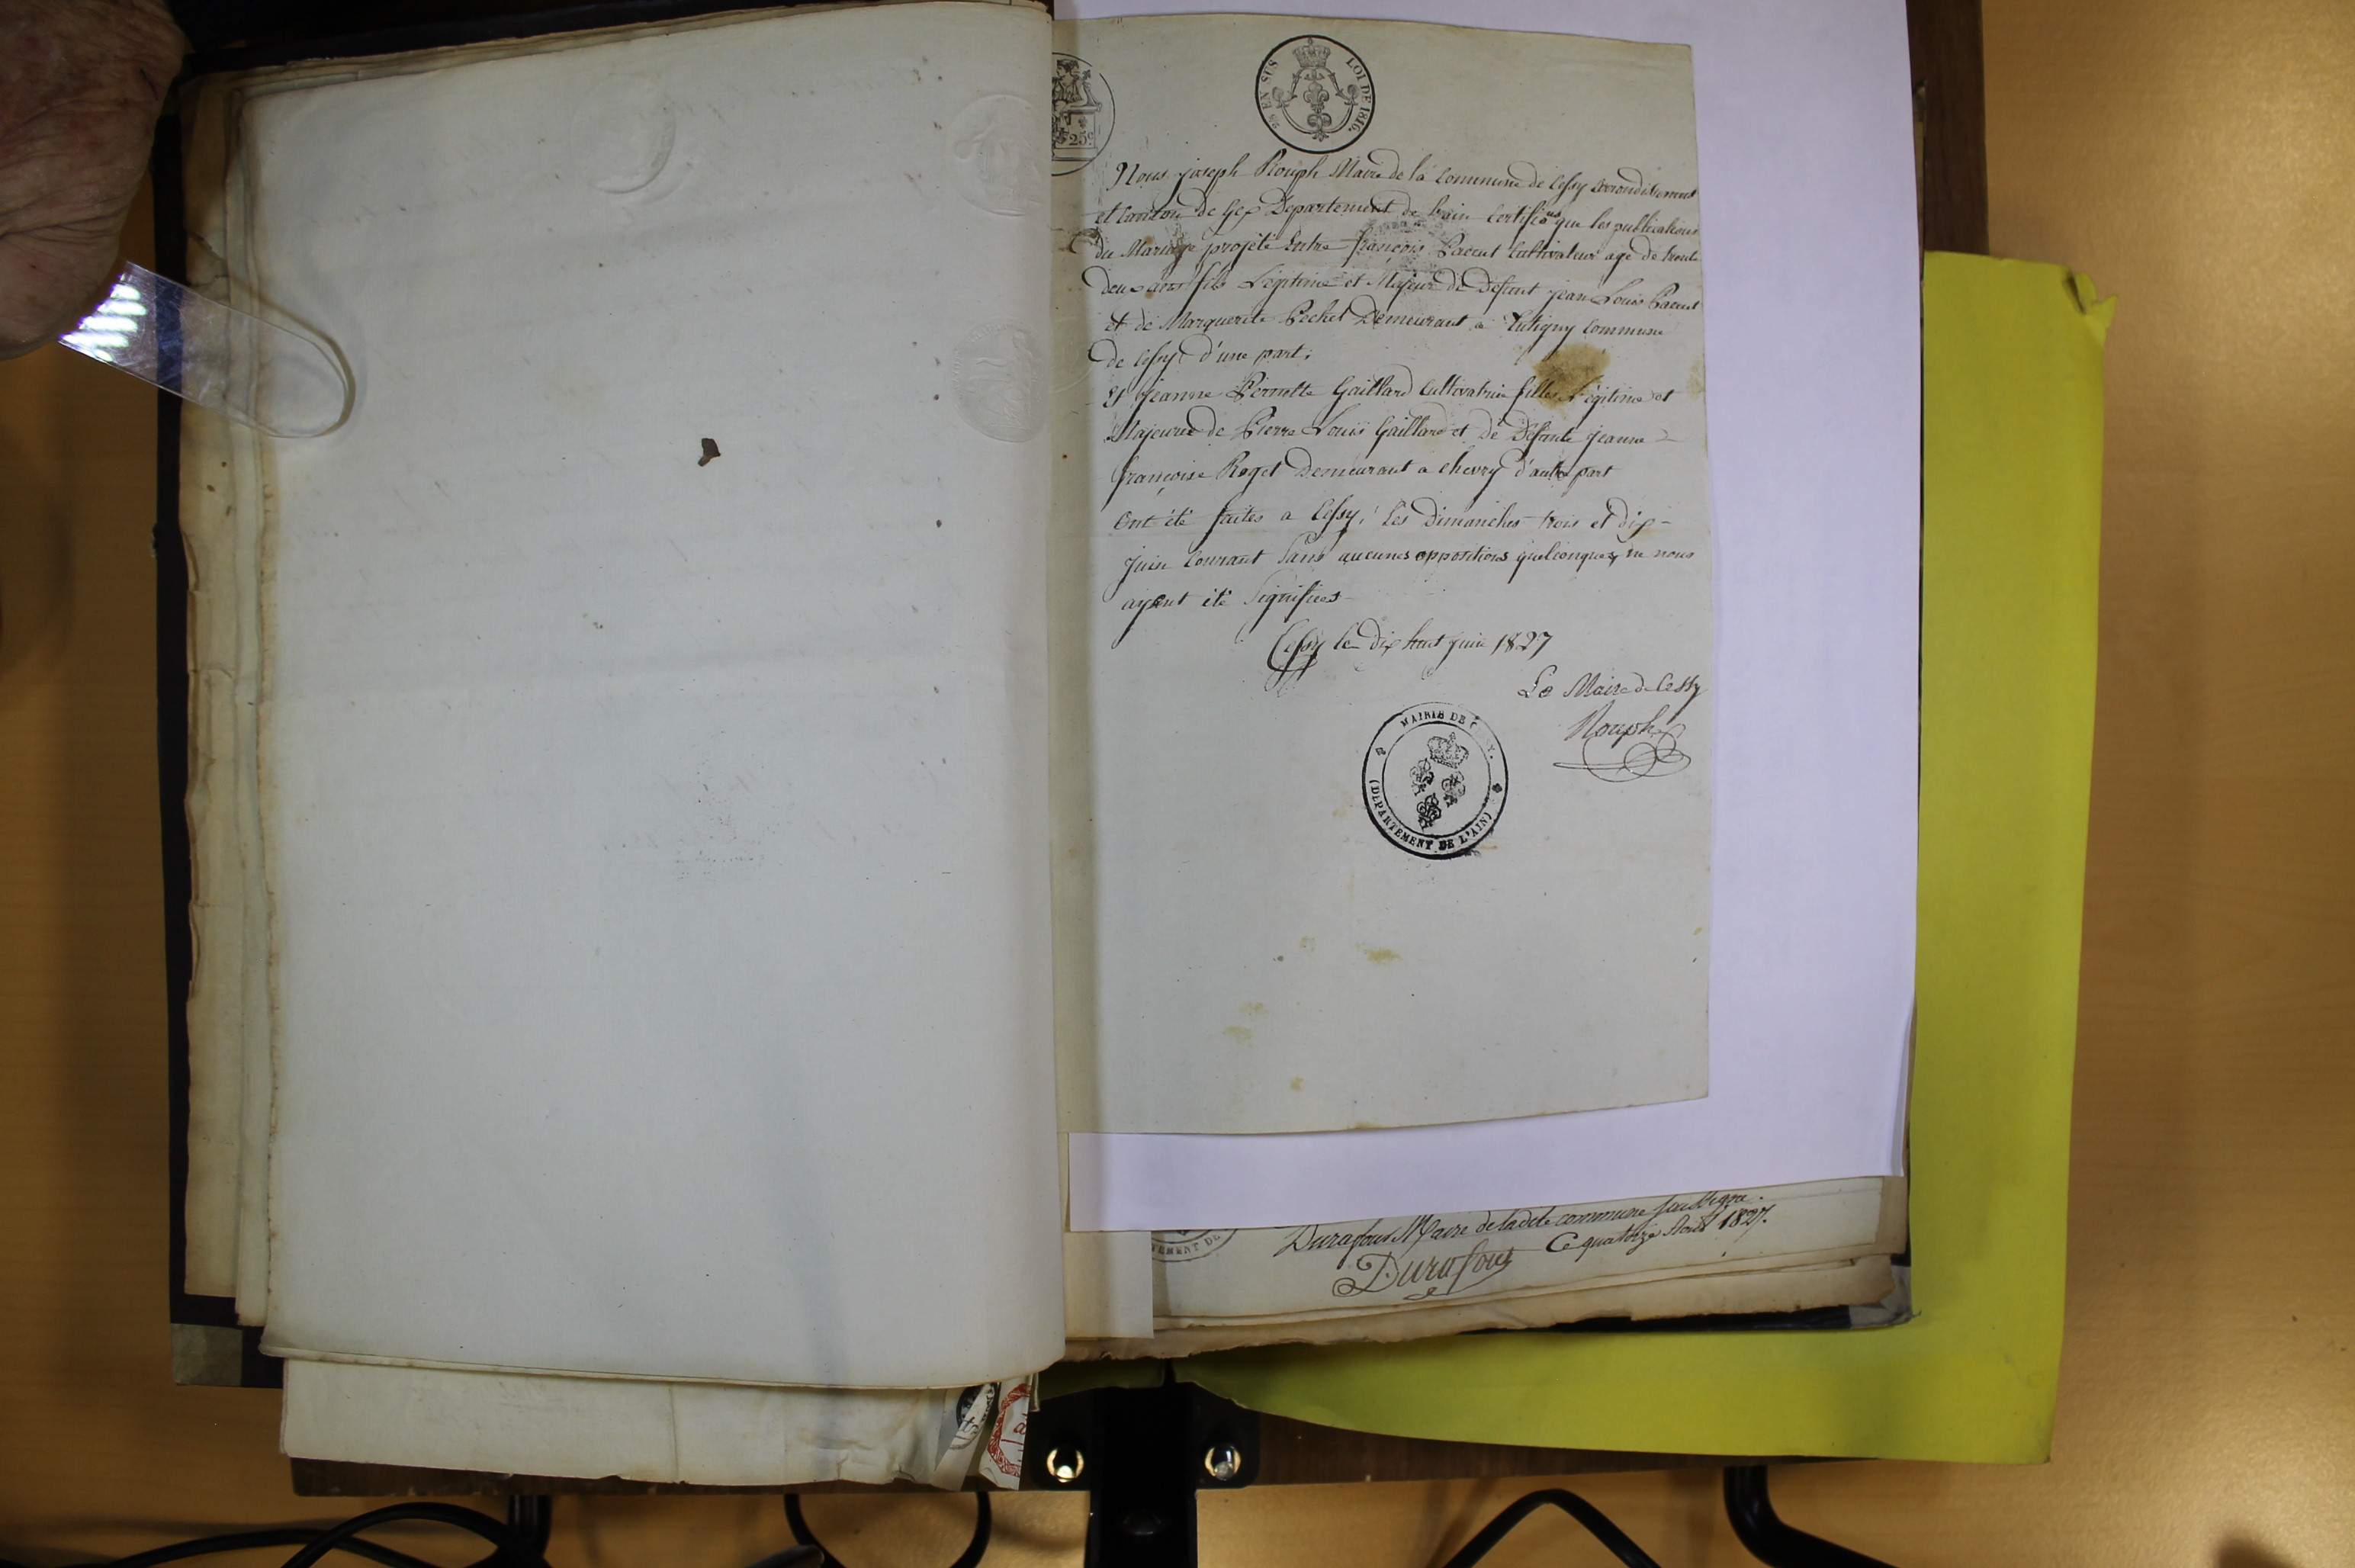 25c
EN SUS LOI DE 1816.
Nous joseph Rouph Maire de la Commune de Cessy arrondissement
et Canton de Gex Département de L'ain Certifions que les publications
du Mariage projété Entre françois Pacent Cultivateur agé de trente
deux ans fils Légitime et Majeur de Défunt jean Louis Pacent
et de Marguerite Pechet Demeurant a Tutigny Commune
de Cessy d'une part;
Et jeanne Pernette Gaillard Cultivatrice filles Légitime et
Majeure de Pierre Louis Gaillard et de Défunte jeanne
françoise Roget Demeurant a chevry d'autre part
Ont été faites a Cessy, les dimanches trois et dix
juin Courant Sans aucunes oppositions quelconques, ne nous
ayent été Signifiées
Cessy le Dix huit juin 1827
Le Maire de Cessy
Rouph
MAIRIE DE C
(DEPARTEMENT DE L'AIN)
Durafour Maire de ladite commune soussigné.
Ce quatorze Août 1827.
Durafour